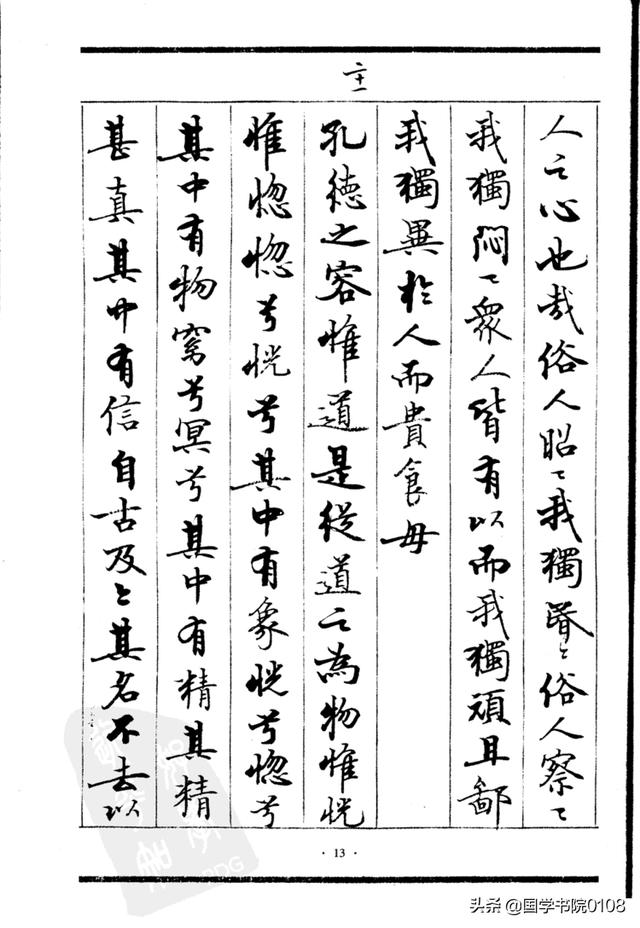 二十一
人之心也哉俗人昭〻我獨昬〻俗人察〻
我獨悶〻眾人皆有以而我獨頑且鄙
我獨異於人而貴食母
孔德之容惟道是從道之為物惟恍
惟惚惚兮恍兮其中有象恍兮惚兮
其中有物窈兮冥兮其中有精其精
甚真其中有信自古及今其名不去以
· 13 ·
头条 @国学书院0108